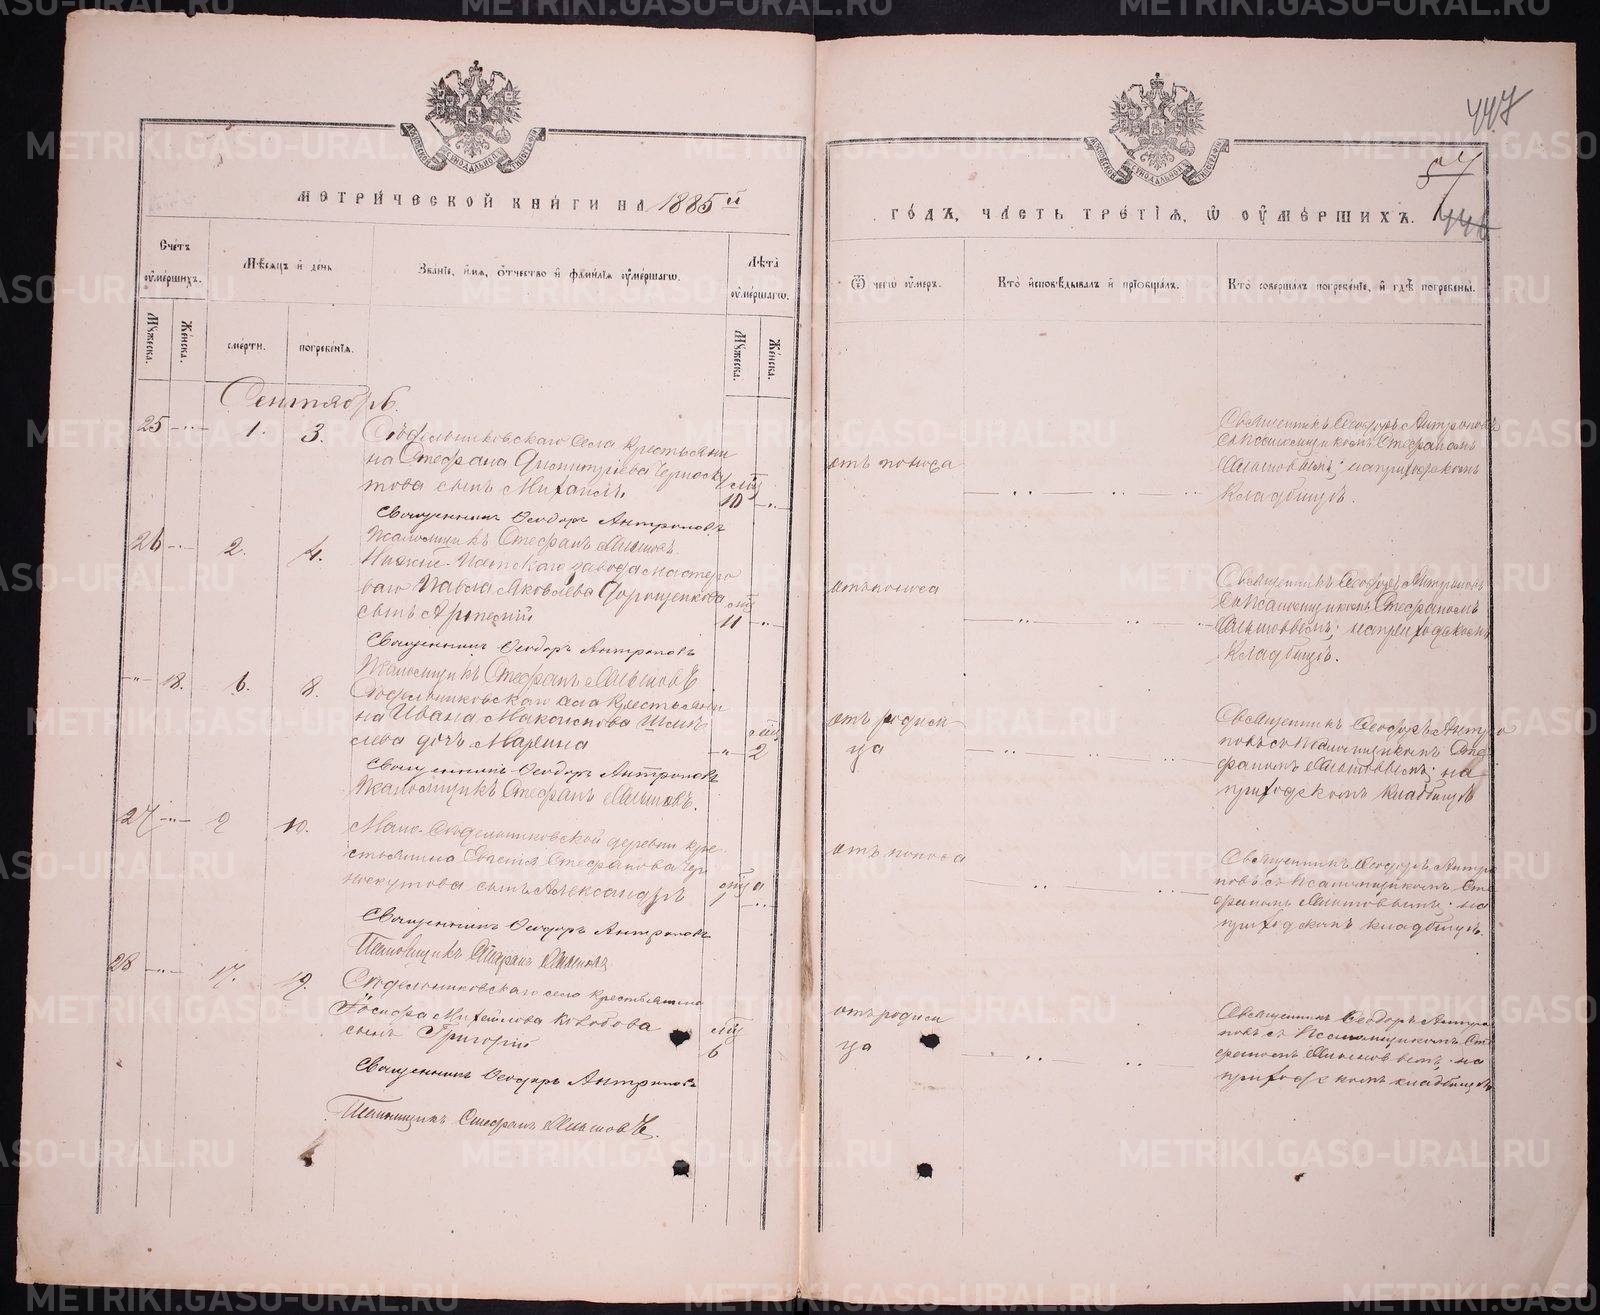 МЕТРИЧЕСКОЙ КНИГИ НА 1885й
ГОДЪ, ЧАСТЬ ТРЕТІЯ, Ѿ ОУМЕРШИХЪ.
447
Счетъ оумершихъ.
Мѣсяцъ и день
Званіе, имя, отчество и фамилія оумершагѡ.
Лѣта оумершагѡ.
Ѿ чегѡ оумеръ.
Кто исповѣдывалъ и пріобщалъ.
Кто совершалъ погребеніе, и гдѣ погребены.
Мꙋжеска.
Женска.
смерти.
погребенія.
Мꙋжеска.
Женска.
Сентябрь.
25 1. 3.
Сѣдельниковскаго села крестьяни
на Стефана Димитріева Черноску
това сынъ Михаилъ
10
отъ поноса
Священникъ Ѳеодоръ Антроповъ
съ Псаломщикомъ Стефаномъ
Мышовымъ; на приходскомъ
кладбищѣ.
Священникъ Ѳеодоръ Антроповъ
Псаломщикъ Стефанъ
26 2. 4.
Нижне-Исетскаго завода мастеро
ваго Павла Яковлева
сынъ Арсеній
11
отъ поноса
Священникъ Ѳеодоръ Антроповъ
съ Псаломщикомъ Стефаномъ
на приходскомъ
кладбищѣ.
Священникъ Ѳеодоръ Антроповъ
Псаломщикъ Стефанъ
18. 6. 8.
Сѣдельниковскаго села крестьяни
на Ивана
дочь Марина
2
отъ родим
ца
Священникъ Ѳеодоръ Антро
повъ съ Псаломщикомъ Сте
фаномъ на
приходскомъ кладбищѣ
Священникъ Ѳеодоръ Антроповъ
Псаломщикъ Стефанъ
27 9 10.
Мало-Сѣдельниковской деревни кре
стьянина Стефанова Чер
носкутова сынъ Александръ
1
отъ поноса
Священникъ Ѳеодоръ Антро
повъ съ Псаломщикомъ Сте
фаномъ на
приходскомъ кладбищѣ.
Священникъ Ѳеодоръ Антроповъ
Псаломщикъ Стефанъ
28 17. 19.
Сѣдельниковскаго села крестьянина
Іосифа Михайлова
сынъ Григорій
6
отъ родим
ца
Священникъ Ѳеодоръ Антро
повъ съ Псаломщикомъ Сте
фаномъ на
приходскомъ кладбищѣ
Священникъ Ѳеодоръ Антроповъ
Псаломщикъ Стефанъ
METRIKI.GASO-URAL.RU